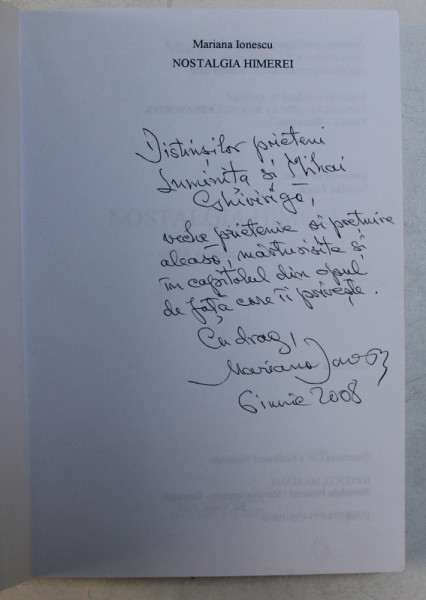 Mariana Ionescu
NOSTALGIA HIMEREI
Distinșilor prieteni
Luminița și Mihai
veche prietenie și prețuire
aleasă, mărturisite și
în capitolul din opul
de față care îi privește.
Cu drag,
Mariana Ionescu
6 iunie 2008